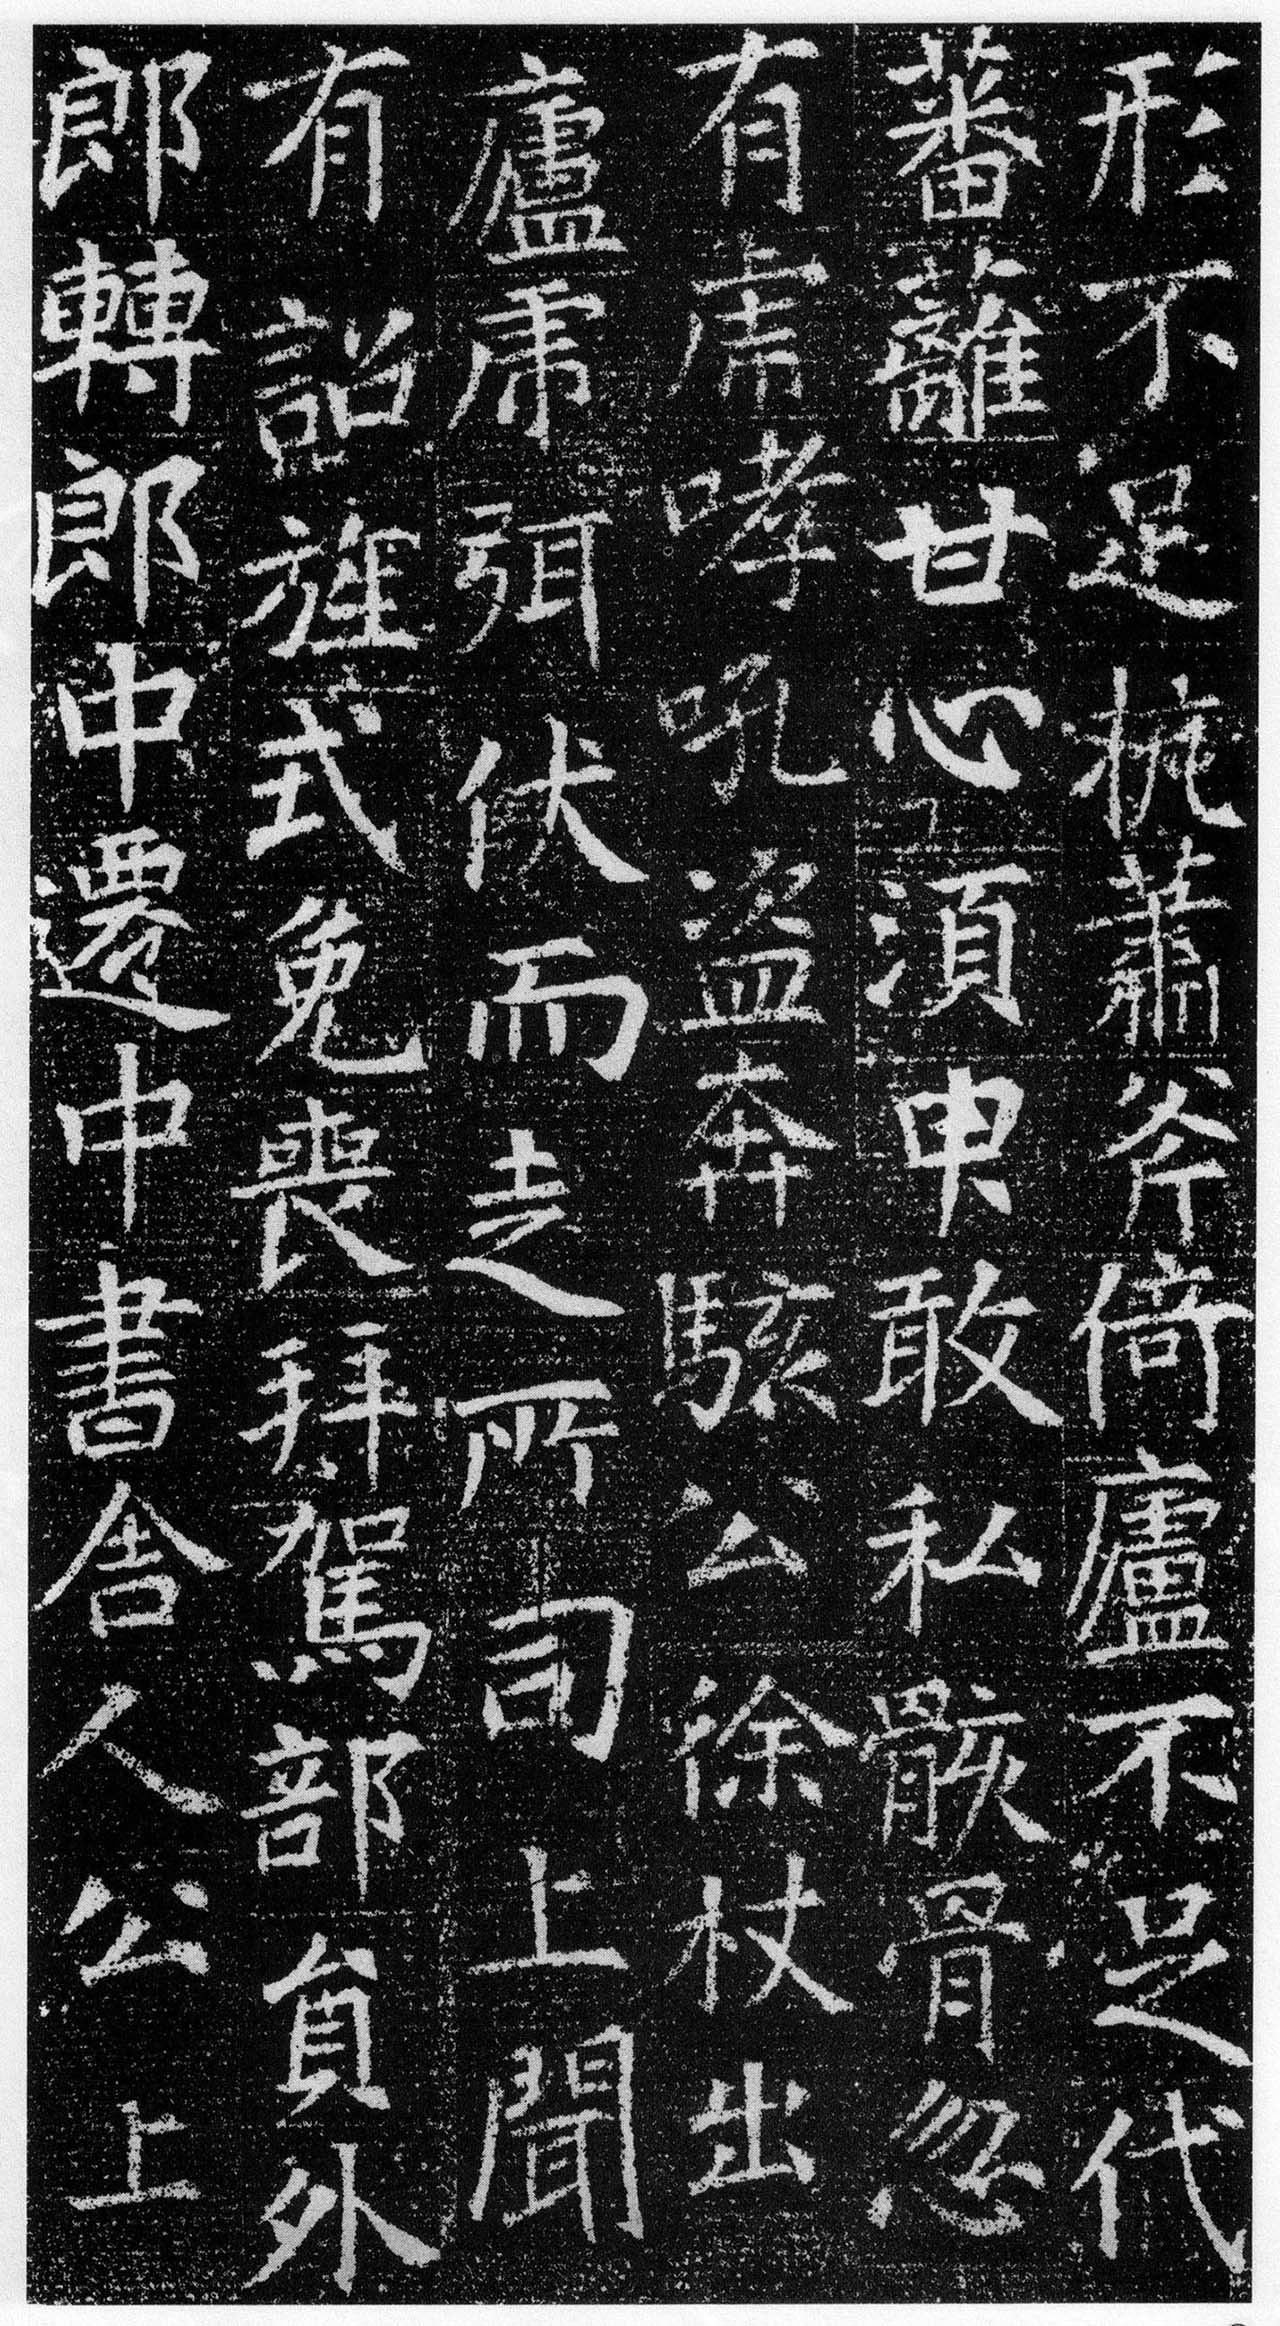 形不足抗蕭斧倚廬不足代
蕃蘺甘心須臾敢私骸骨忽
有虎哮吼盜奔駭公徐杖出
廬虎弭伏而走所司上聞
有詔旌式免喪拜駕部員外
郎轉郎中遷中書舍人公上